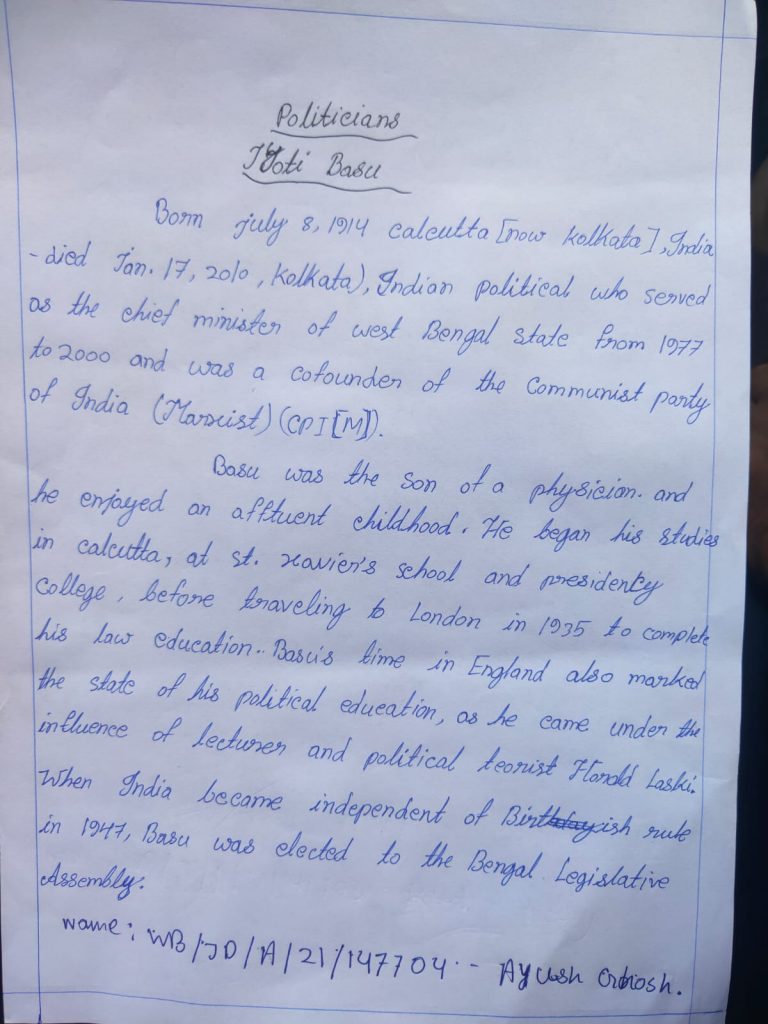 Politicians
Jyoti Basu
Born july 8, 1914 calcutta [now kolkata], India
- died Jan. 17, 2010, Kolkata), Indian political who served
as the chief minister of west Bengal state from 1977
to 2000 and was a cofounder of the Communist party
of India (Marxist) (CPI[M]).
Basu was the son of a physician. and
he enjoyed an afftuent childhood. He began his studies
in calcutta, at st. xavier's school and presidency
College, before traveling to London in 1935 to complete
his law education.. Basu's time in England also marked
the state of his political education, as he came under the
influence of lecturer and political teorist Harold Laski.
When India became independent of Birtish rule
in 1947, Basu was elected to the Bengal Legislative
Assembly.
name: WB/JD/A/21/147704 - Ayush